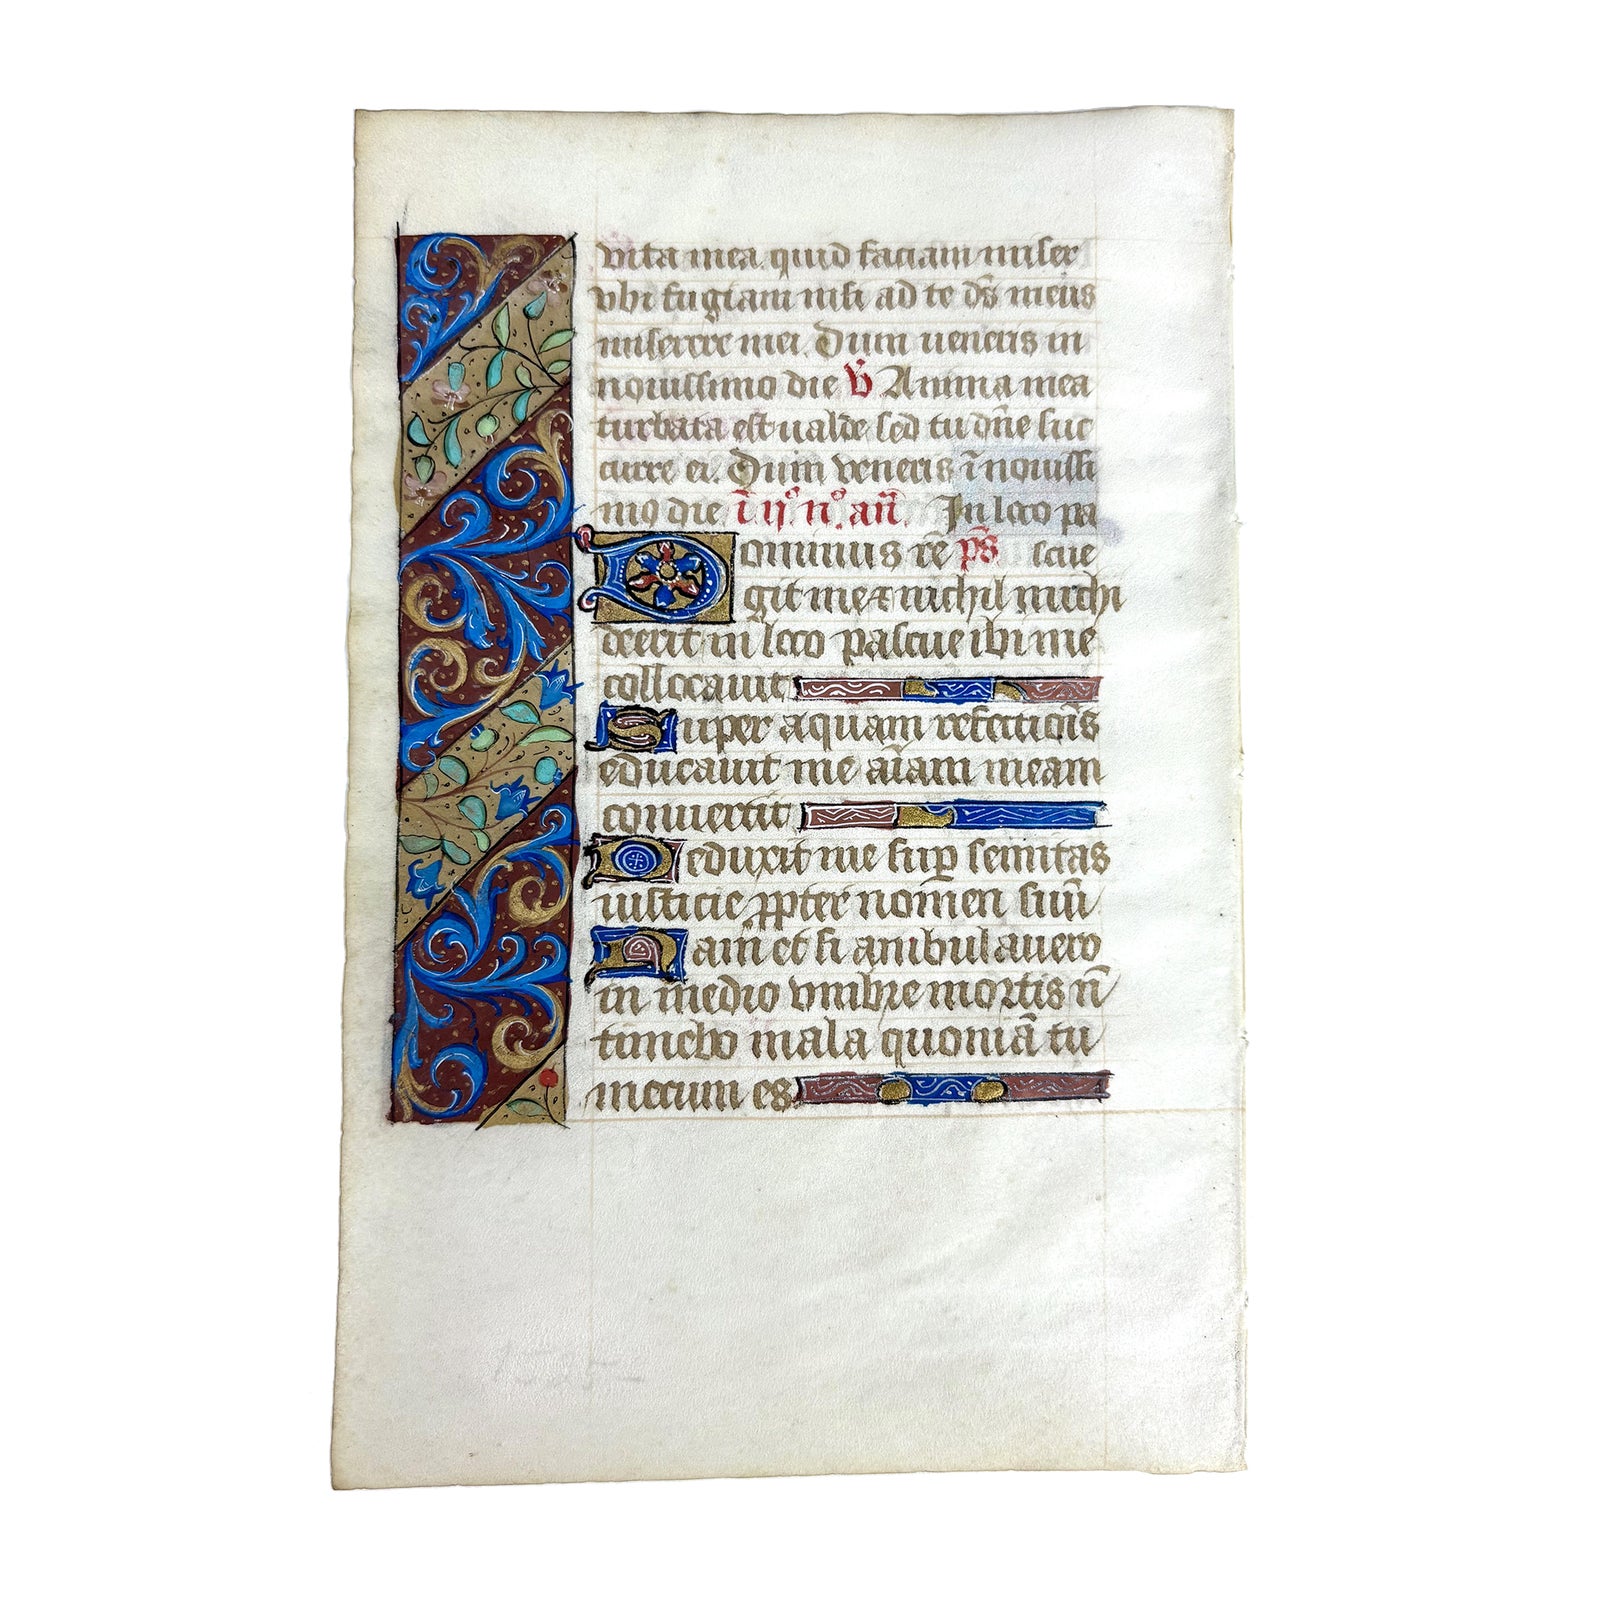 vita mea. quid faciam miser
vbi fugiam nisi ad te de᷒ meus
miserere mei. Dum veneris in
nouissimo die v̄ Anima mea
turbata est ualde sed tu dn̄e suc
curre ei. Dum veneris ī nouissi
mo die ī ij° n° an̄. In loco pa
Dominus re ps̄ scue
git me ⁊ nichil michi
deerit in loco pascue ibi me
collocauit
Super aquam refectiōis
educauit me aīam meam
conuertit
Deduxit me suꝑ semitas
iusticie ꝓpter nomen suū
Nam et si ambulauero
in medio vmbre mortis n̄
timebo mala quoniā tu
mecum es